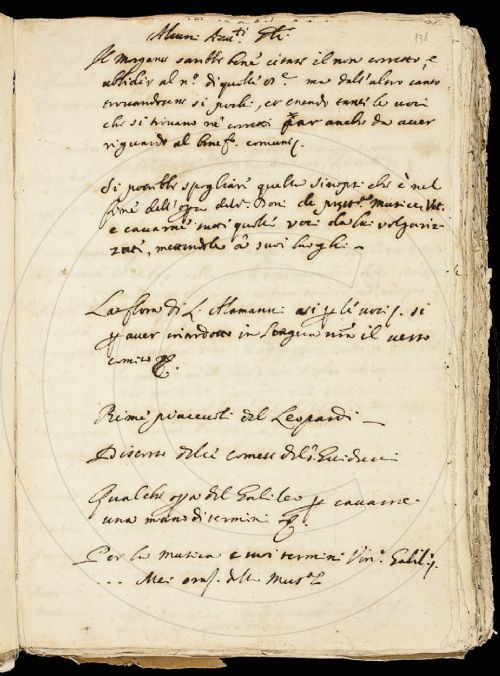 Alcuni
Il Morgante sarebbe bene citare il non corretto, e
al n.º di quelli ma dall'altro canto
trovandosene si pochi, et essendo tante le voci
che si trovano ne' corretti par anche da aver
riguardo al benef. comune.
Si potrebbe spogliare quella sinopsi che è nel
fine dell'opa del Doni de Musicæ Vet.
e cavarne tutti quelli voci da lui volgariz-
zati, mettendole a' suoi luoghi –
La Flora di L. Alamanni si p le voci, si
p aver in lingua nrã il verso
comico
Rime piacevoli del Leopardi –
Discorso delle comete del Guiducci
Qualche opa del Galileo p cavarne
una mano di termini
Per la musica e suoi termini Vin.º Galil.
... Mei della Mus.ª